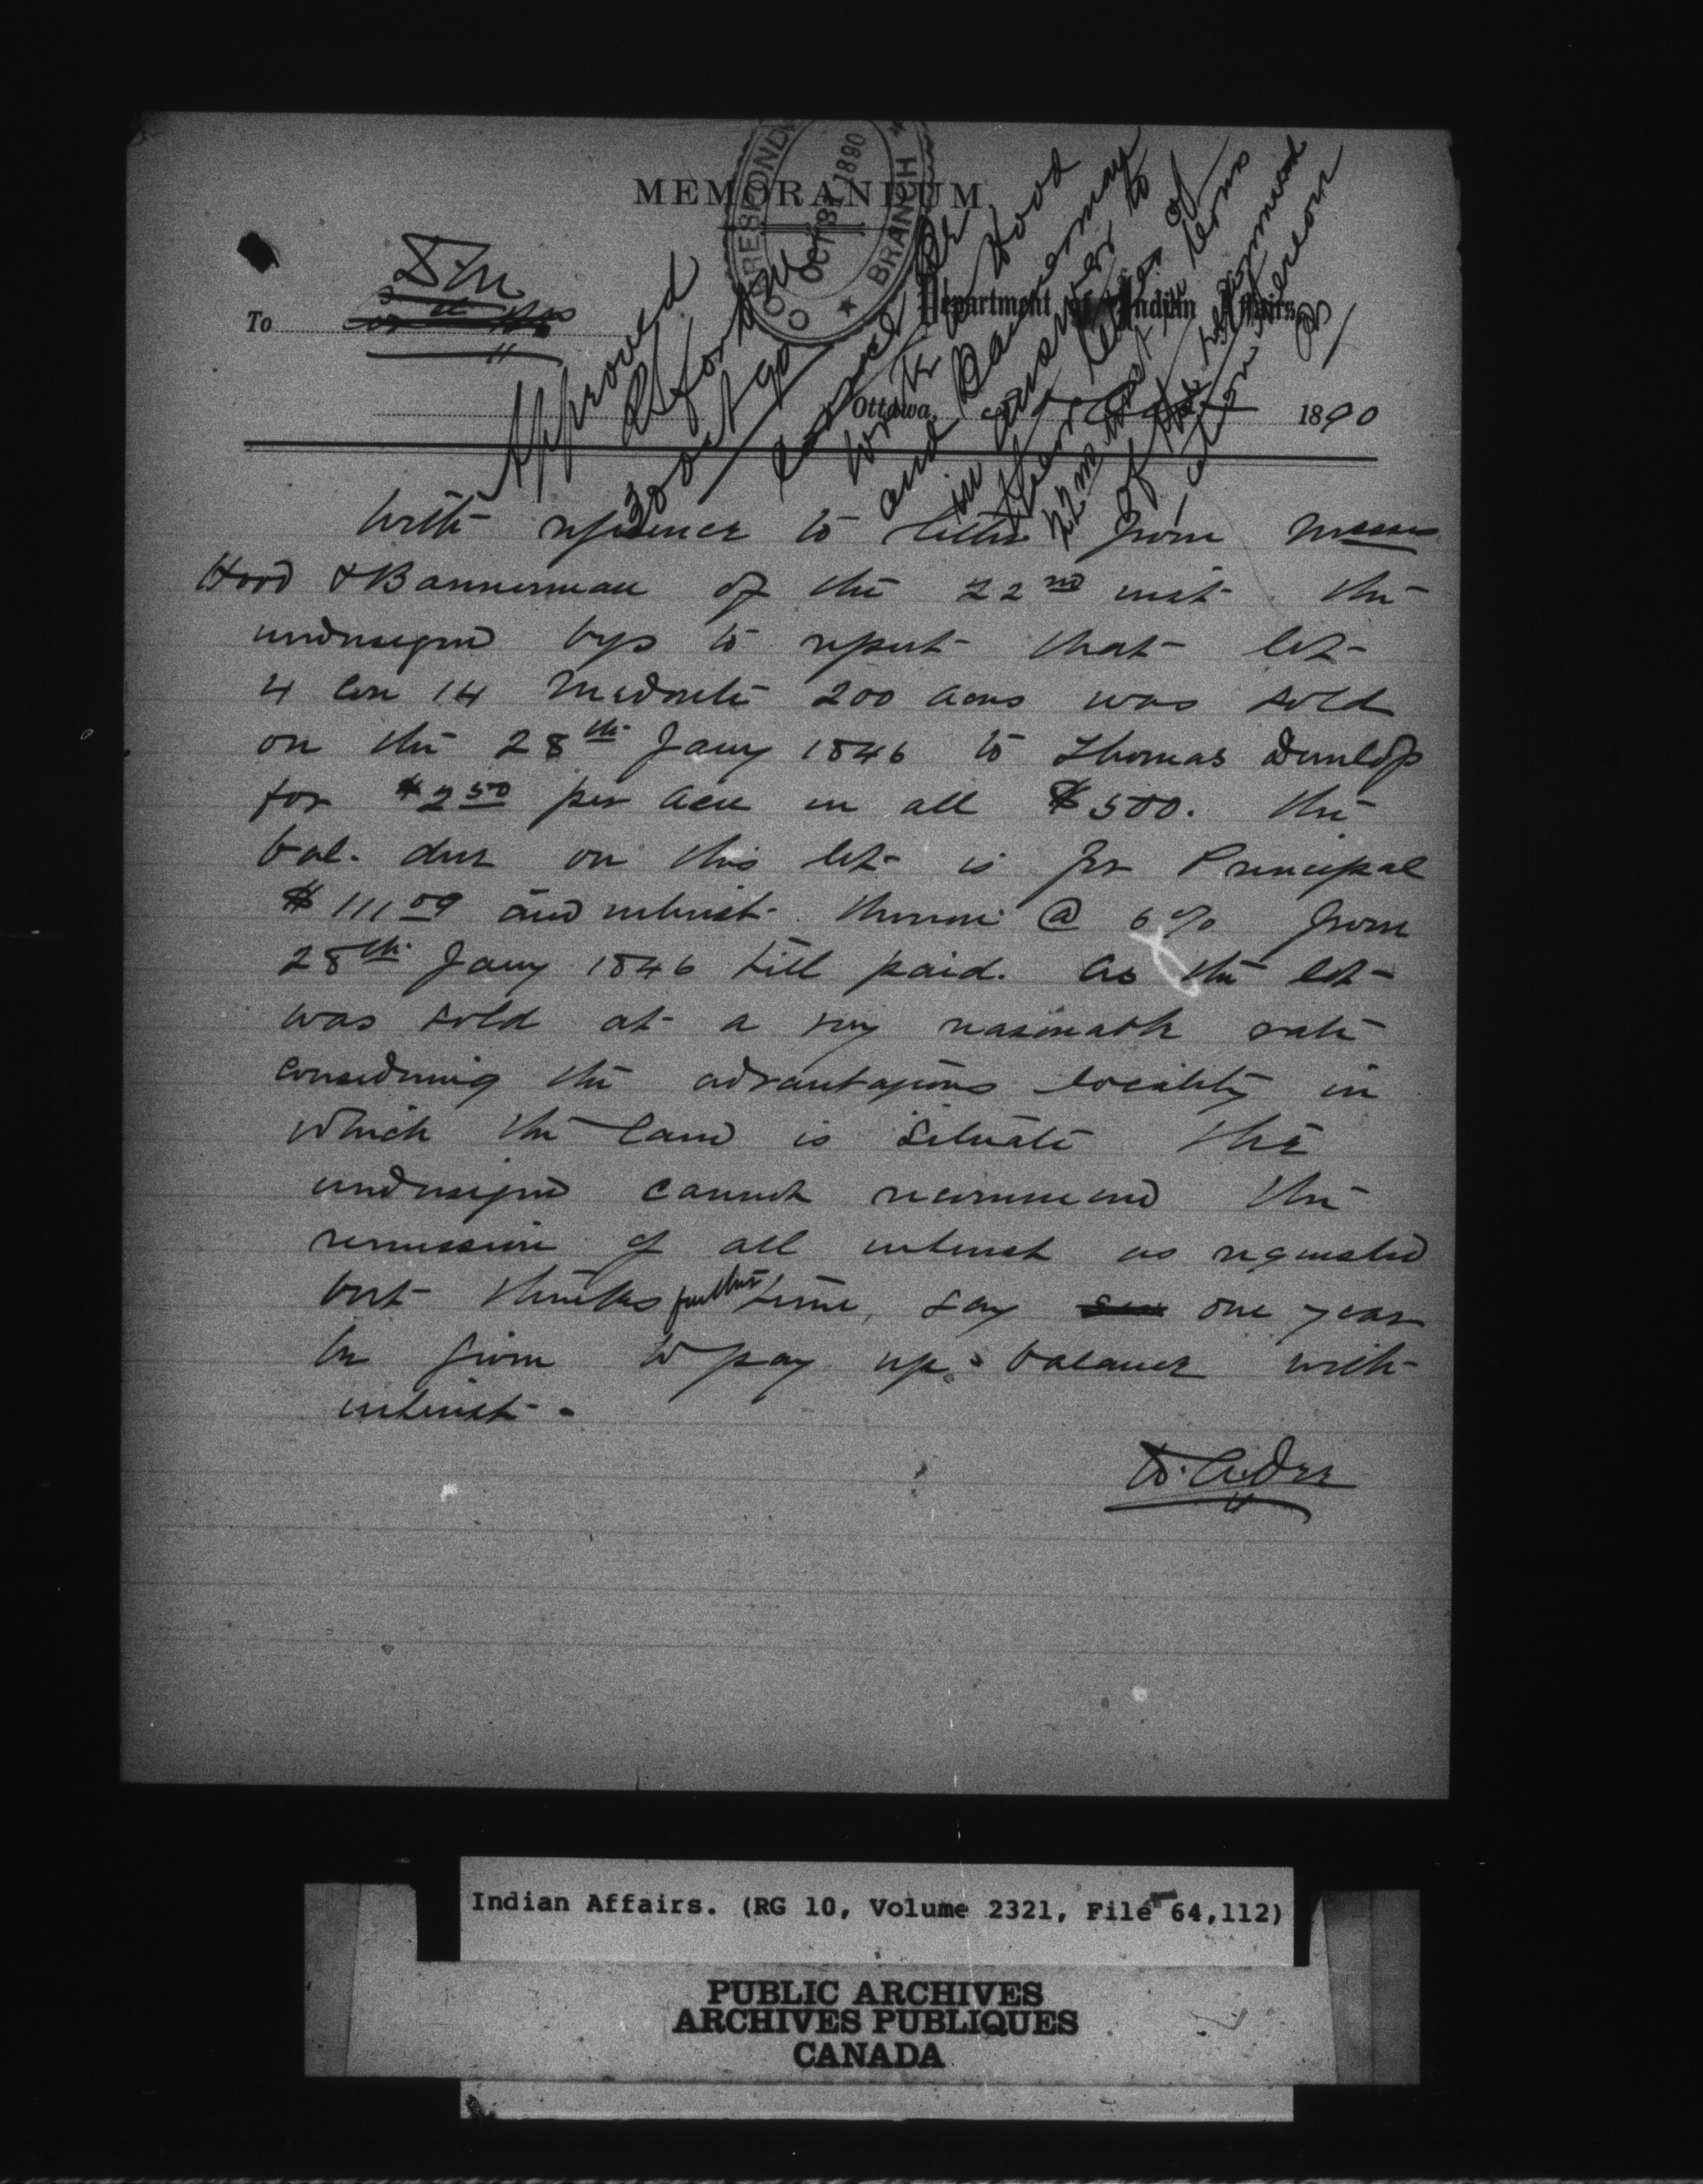 MEMORANDUM
CORRESPONDENCE BRANCH
OCT 31 1890
To
Department of Indian Affairs,
Ottawa, 1890
Approved
30 Oct 90
Hood
and Bannerman
in answer to
their letter of
With reference to letter from Messrs
Hood & Bannerman of the 22nd inst. the
undersigned begs to report that lot
4 Con 14 Medonte 200 acres was sold
on the 28th Jany 1846 to Thomas Dunlop
for $2.50 per acre in all $500. The
bal. due on this lot is for Principal
$111.09 and interest thereon @ 6% from
28th Jany 1846 till paid. As the lot
was sold at a very reasonable rate
considering the advantageous locality in
which the land is situate the
undersigned cannot recommend the
remission of all interest as requested
but thinks further time, say one year
be given to pay up balance with
interest.
Indian Affairs. (RG 10, Volume 2321, File 64,112)
PUBLIC ARCHIVES
ARCHIVES PUBLIQUES
CANADA